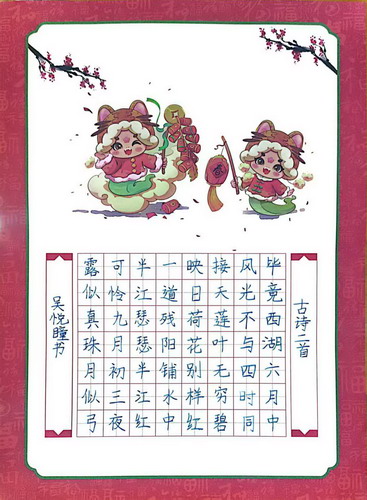 古诗二首
毕竟西湖六月中
风光不与四时同
接天莲叶无穷碧
映日荷花别样红
一道残阳铺水中
半江瑟瑟半江红
可怜九月初三夜
露似真珠月似弓
吴悦瞳书